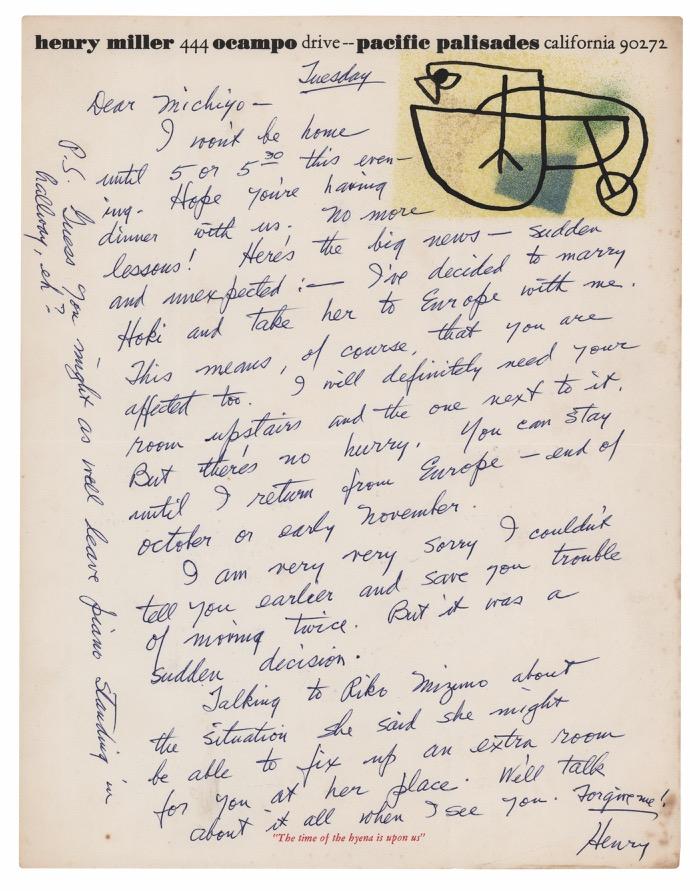 henry miller 444 ocampo drive -- pacific palisades california 90272
Tuesday
Dear Michiyo —
I won't be home
until 5 or 5 30 this even-
ing. Hope you're having
dinner with us. No more
lessons! Here's the big news — sudden
and unexpected :— I've decided to marry
Hoki and take her to Europe with me.
This means, of course, that you are
affected too. I will definitely need your
room upstairs and the one next to it.
But there's no hurry. You can stay
until I return from Europe — end of
october or early November.
I am very very sorry I couldn't
tell you earlier and save you trouble
of moving twice. But it was a
sudden decision.
Talking to Riko Mizuno about
the situation she said she might
be able to fix up an extra room
for you at her place. We'll talk
about it all when I see you. Forgive me!
Henry
"The time of the hyena is upon us"
P.S. Guess you might as well leave piano standing in
hallway, eh?